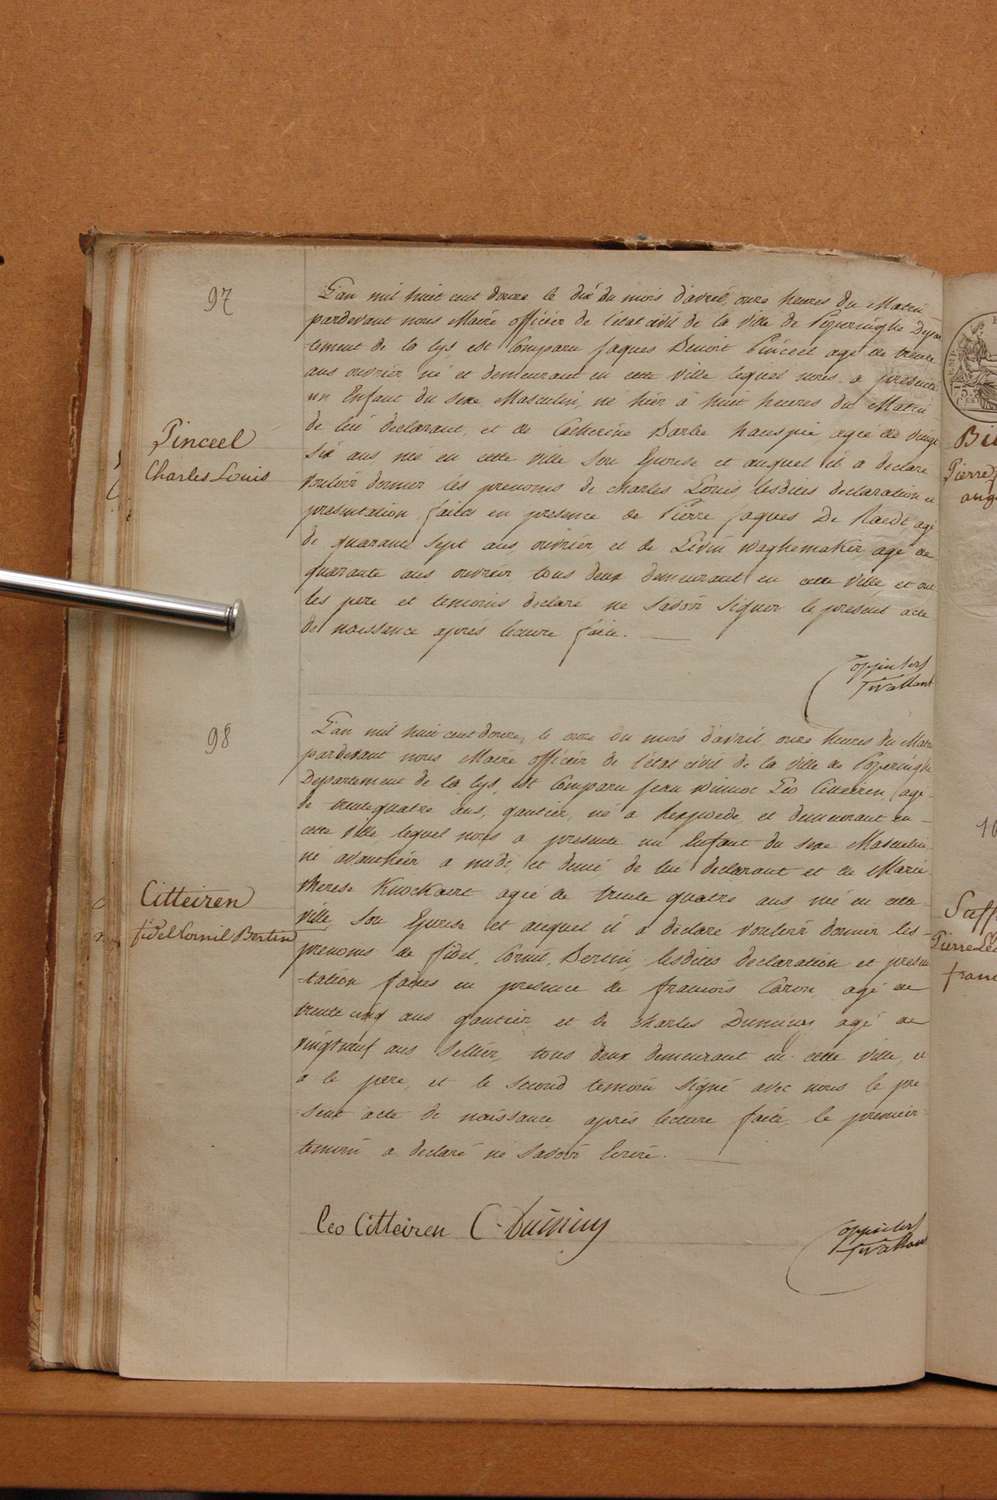 97
L'an mil huit cent douze le dix du mois d'avril, onze heures du Matin
pardevant nous Maire officier de l'état civil de la ville de Poperinghe Depar
tement de la lys, est Comparu Jaques Benoit Pinceel agé de trente
ans ouvrier né et demeurant en cette ville lequel nous a presenté
un Enfant du sexe Masculin, né hier à huit heures du Matin
Pinceel
Charles Louis
de lui declarant, et de Catherine Barbe hauspie, agée de vingt
six ans née en cette ville Son Epouse et auquel il a declaré
vouloir donner les prenoms de Charles Louis, lesdites declaration et
presentation faites en presence de Pierre Jaques De Raedt agé
de quarante sept ans, ouvrier et de Livin Waghemaker, agé de
quarante ans ouvrier tous deux demeurant en cette ville, et ont
les pere et temoins declaré ne savoir signer le present acte
de naissance après lecture faite.
98
L'an mil huit cent douze, le onze du mois d'avril, onze heures du Matin
pardevant nous Maire officier de l'état civil de la ville de Poperinghe
Departement de la lys, est Comparu Jean Winnoc Léo Citteiren, agé
de trente quatre ans, gantier, né a Rexpoede, et demeurant en
cette ville lequel nous a presenté un Enfant du sexe Masculin,
né avanthier a midi, et demi de lui declarant et de Marie
Citteiren
fidel Cornil Bertin
therese Knockaert agée de trente quatre ans née en cette
ville Son Epouse et auquel il a declaré vouloir donner les
prenoms de fidel, Cornil, Bertin, lesdites declaration et presen
tation faites en presence de francois Caron, agé de
trente cinq ans gantier, et de Charles Duminy agé de
vingtneuf ans Sellier, tous deux demeurant en cette ville, et
a le pere, et le second temoin signé avec nous le pre
sent acte de naissance après lecture faite, le premier
temoin a declaré ne savoir Ecrire.
Leo Citteiren C. Duminy
Pierre